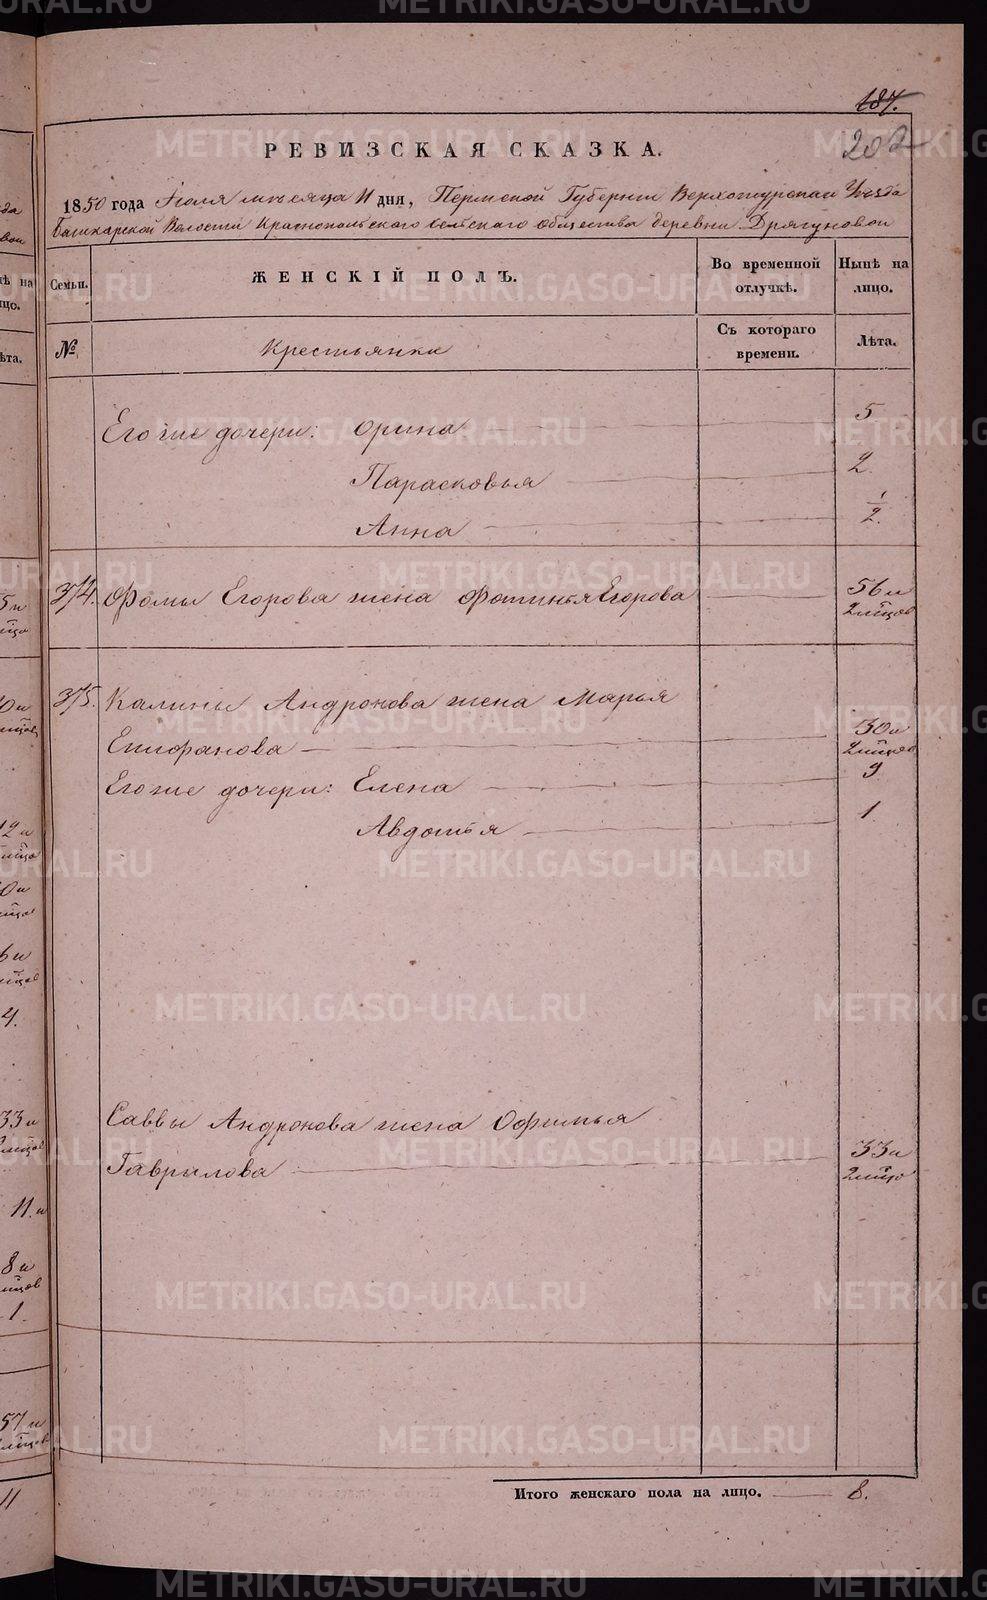 METRIKI.GASO-URAL.RU
187.
202
РЕВИЗСКАЯ СКАЗКА.
1850 года Июля месяца 11 дня, Пермской Губернии Верхотурскаго Уезда
Башкарской Волости Краснопольскаго сельскаго общества деревни Дрягуновой
Семьи. ЖЕНСКІЙ ПОЛЪ. Во временной отлучкѣ. Нынѣ на лицо.
№ Крестьянки Съ котораго времени. Лѣта.
Его же дочери: Орина 5
Парасковья 2.
Анна 1/2.
374. Фомы Егорова жена Фотинья Егорова 56 и
2 мѣсцов
375. Калины Андронова жена Марья
Епифанова 30 и
2 мѣсцов
Его же дочери: Елена 9
Авдотья 1.
Саввы Андронова жена Офимья
Гаврилова 33 и
2 мѣсцо
Итого женскаго пола на лицо. 8.